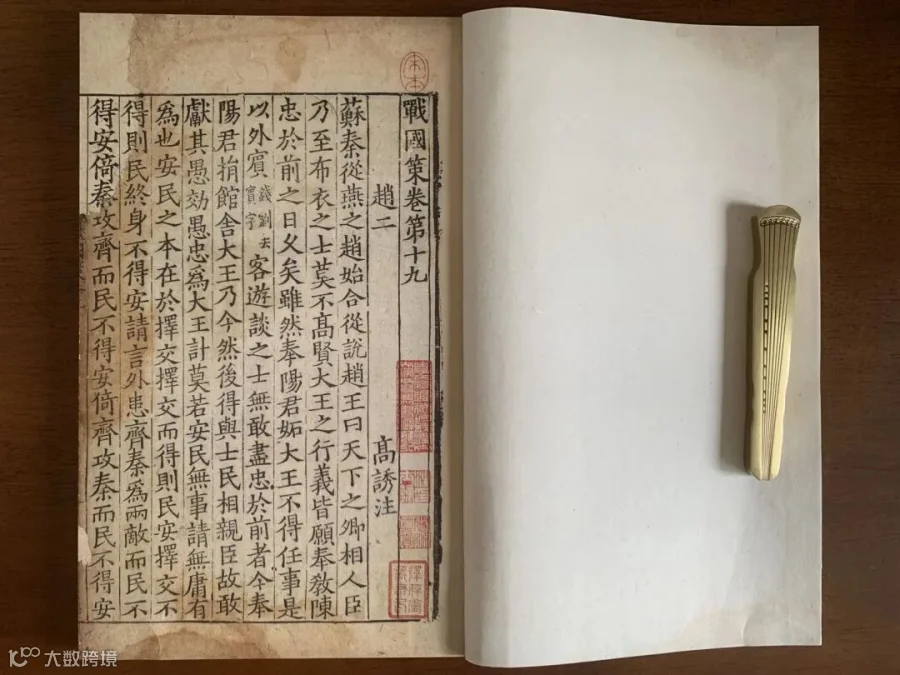 戰國策卷第十九
趙二
高誘注
蘇秦從燕之趙始合從說趙王曰天下之卿相人臣
乃至布衣之士莫不高賢大王之行義皆願奉教陳
忠於前之日久矣雖然奉陽君妬大王不得任事是
以外賓
錢劉去
賓字
客遊談之士無敢盡忠於前者今奉
陽君捐館舍大王乃今然後得與士民相親臣故敢
獻其愚効愚忠為大王計莫若安民無事請無庸有
為也安民之本在於擇交擇交而得則民安擇交不
得則民終身不得安請言外患齊秦為兩敵而民不
得安倚秦攻齊而民不得安倚齊攻秦而民不得安
大数跨境